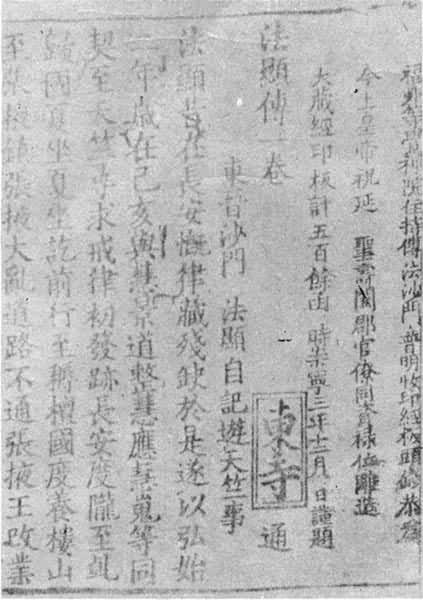 福州等覺禪院住持傳法沙門普明收印經板頭錢恭為
今上皇帝祝延 聖壽闔郡官僚同資祿位雕造
大藏經印板計五百餘函 時崇寧三年十二月 日謹題
法顯傳一卷 通
東寺
東晉沙門 法顯自記遊天竺事
法顯昔在長安慨律藏殘缺於是遂以弘始
二年歲在己亥與慧景道整慧應慧嵬等同
契至天竺尋求戒律初發跡長安度隴至乹
歸國夏坐夏坐訖前行至耨檀國度養樓山
至張掖鎮張掖大亂道路不通張掖王段業